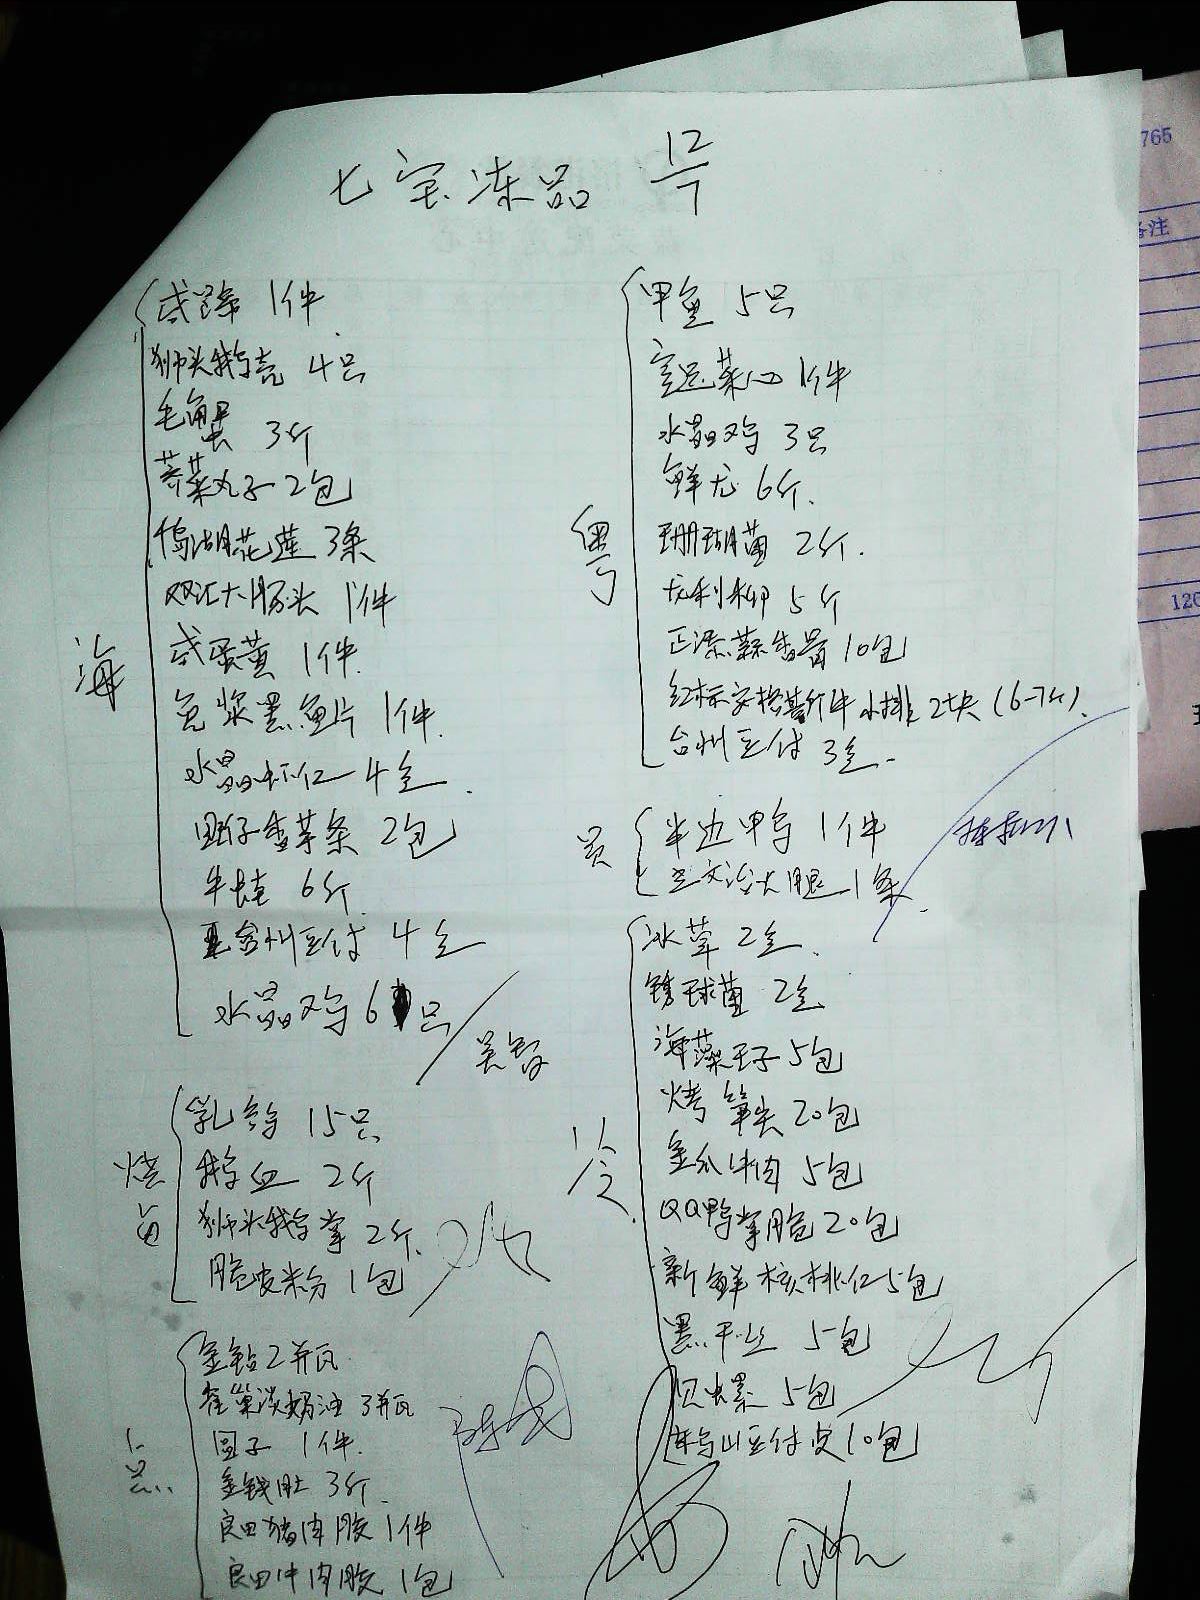 七宝冻品 12/7
海
1件
狮头鹅壳 4只
毛蟹 3斤
荠菜丸子 2包
花莲 3条
双汇大肠头 1件
咸蛋黄 1件
免浆黑鱼片 1件
水晶虾仁 4盒
2包
牛蛙 6斤
台州豆付 4盒
水晶鸡 6只
烧
乳鸽 15只
鹅血 2斤
狮头鹅掌 2斤
脆皮粉 1包
点
金钻 2并瓦
雀巢淡奶油 3并瓦
圆子 1件
金钱肚 3斤
良田猪肉胶 1件
良田牛肉胶 1包
粤
甲鱼 5只
菜心 1件
水晶鸡 3只
鲜尤 6斤
珊瑚菌 2斤
尤利柳 5斤
蒜香骨 10包
红标安格斯牛小排 2块 (6-7斤)
台州豆付 3盒
半边甲鸟 1件
三文治大腿 1条
冷
冰草 2盒
锈球菌 2盒
海藻王子 5包
烤笋尖 20包
金爪牛肉 5包
QQ鸭掌脆 20包
新鲜核桃仁 5包
黑干丝 5包
贝螺 5包
山豆付皮 10包
765
备注
120